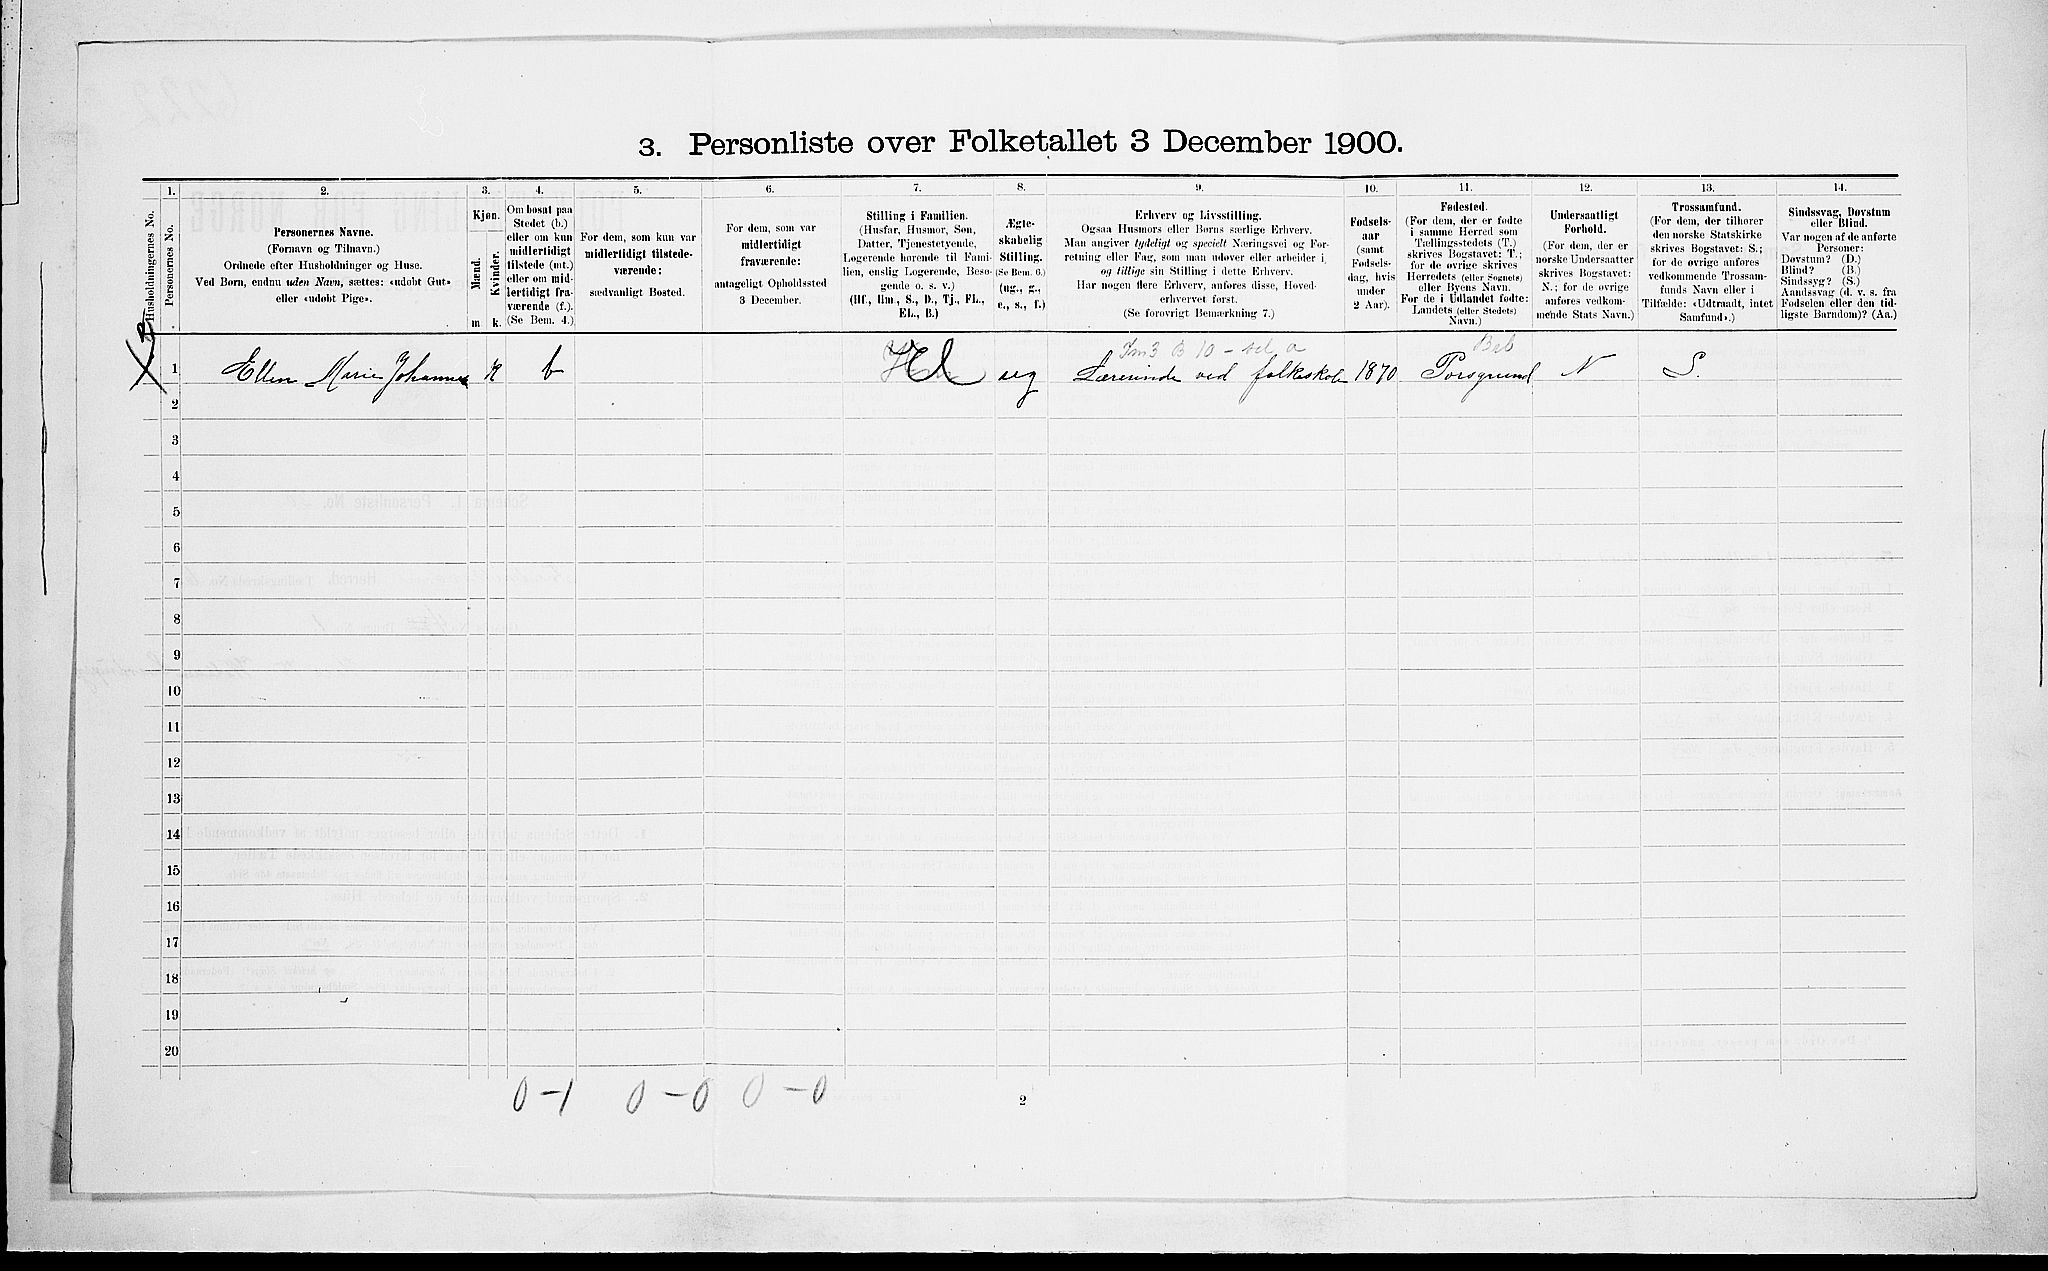 3. Personliste over Folketallet 3 December 1900.
1. 2. 3. 4. 5. 6. 7. 8. 9. 10. 11. 12. 13. 14.
Husholdningernes No.
Personernes No.
Personernes Navne.
(Fornavn og Tilnavn.)
Ordnede efter Husholdninger og Huse.
Ved Børn, endnu uden Navn, sættes: «udøbt Gut»
eller «udøbt Pige».
Kjøn.
Mænd.
Kvinder.
m k.
Om bosat paa
Stedet (b.)
eller om kun
midlertidigt
tilstede (mt.)
eller om mid-
lertidigt fra-
værende (f.).
(Se Bem. 4.)
For dem, som kun var
midlertidigt tilstede-
værende:
sædvanligt Bosted.
For dem, som var
midlertidigt
fraværende:
antageligt Opholdssted
3 December.
Stilling i Familien.
(Husfar, Husmor, Søn,
Datter, Tjenestetyende,
Logerende hørende til Fami-
lien, enslig Logerende, Besø-
gende o. s. v.)
(Hf., Hm., S., D., Tj., FL.,
EL., B.)
Ægte-
skabelig
Stilling.
(Se Bem. 6.)
(ug., g.,
e., s., f.)
Erhverv og Livsstilling.
Ogsaa Husmors eller Børns særlige Erhverv.
Man angiver tydeligt og specielt Næringsvei og For-
retning eller Fag, som man udøver eller arbeider i,
og tillige sin Stilling i dette Erhverv.
Har nogen flere Erhverv, anføres disse, Hoved-
erhvervet først.
(Se forøvrigt Bemærkning 7.)
Fødsels-
aar
(samt
Fødsels-
dag, hvis
under
2 Aar).
Fødested.
(For dem, der er fødte
i samme Herred som
Tællingsstedets (T.)
skrives Bogstavet: T.;
for de øvrige skrives
Herredets (eller Sognets)
eller Byens Navn.
For de i Udlandet fødte:
Landets (eller Stedets)
Navn.)
Undersaatligt
Forhold.
(For dem, der er
norske Undersaatter
skrives Bogstavet:
N.; for de øvrige
anføres vedkom-
mende Stats Navn.)
Trossamfund.
(For dem, der tilhører
den norske Statskirke
skrives Bogstavet: S.;
for de øvrige anføres
vedkommende Trossam-
funds Navn eller i
Tilfælde: «Udtraadt, intet
Samfund».)
Sindssvag, Døvstum
eller Blind.
Var nogen af de anførte
Personer:
Døvstum? (D.)
Blind? (B.)
Sindssyg? (S.)
Aandssvag (d. v. s. fra
Fødselen eller den tid-
ligste Barndom)? (Aa.)
1 Ellen Marie Johannes k b ug Lærerinde ved folkeskole 1870 Porsgrund N S.
2
3
4
5
6
7
8
9
10
11
12
13
14
15
16
17
18
19
20
0-1 0-0 0-0
2